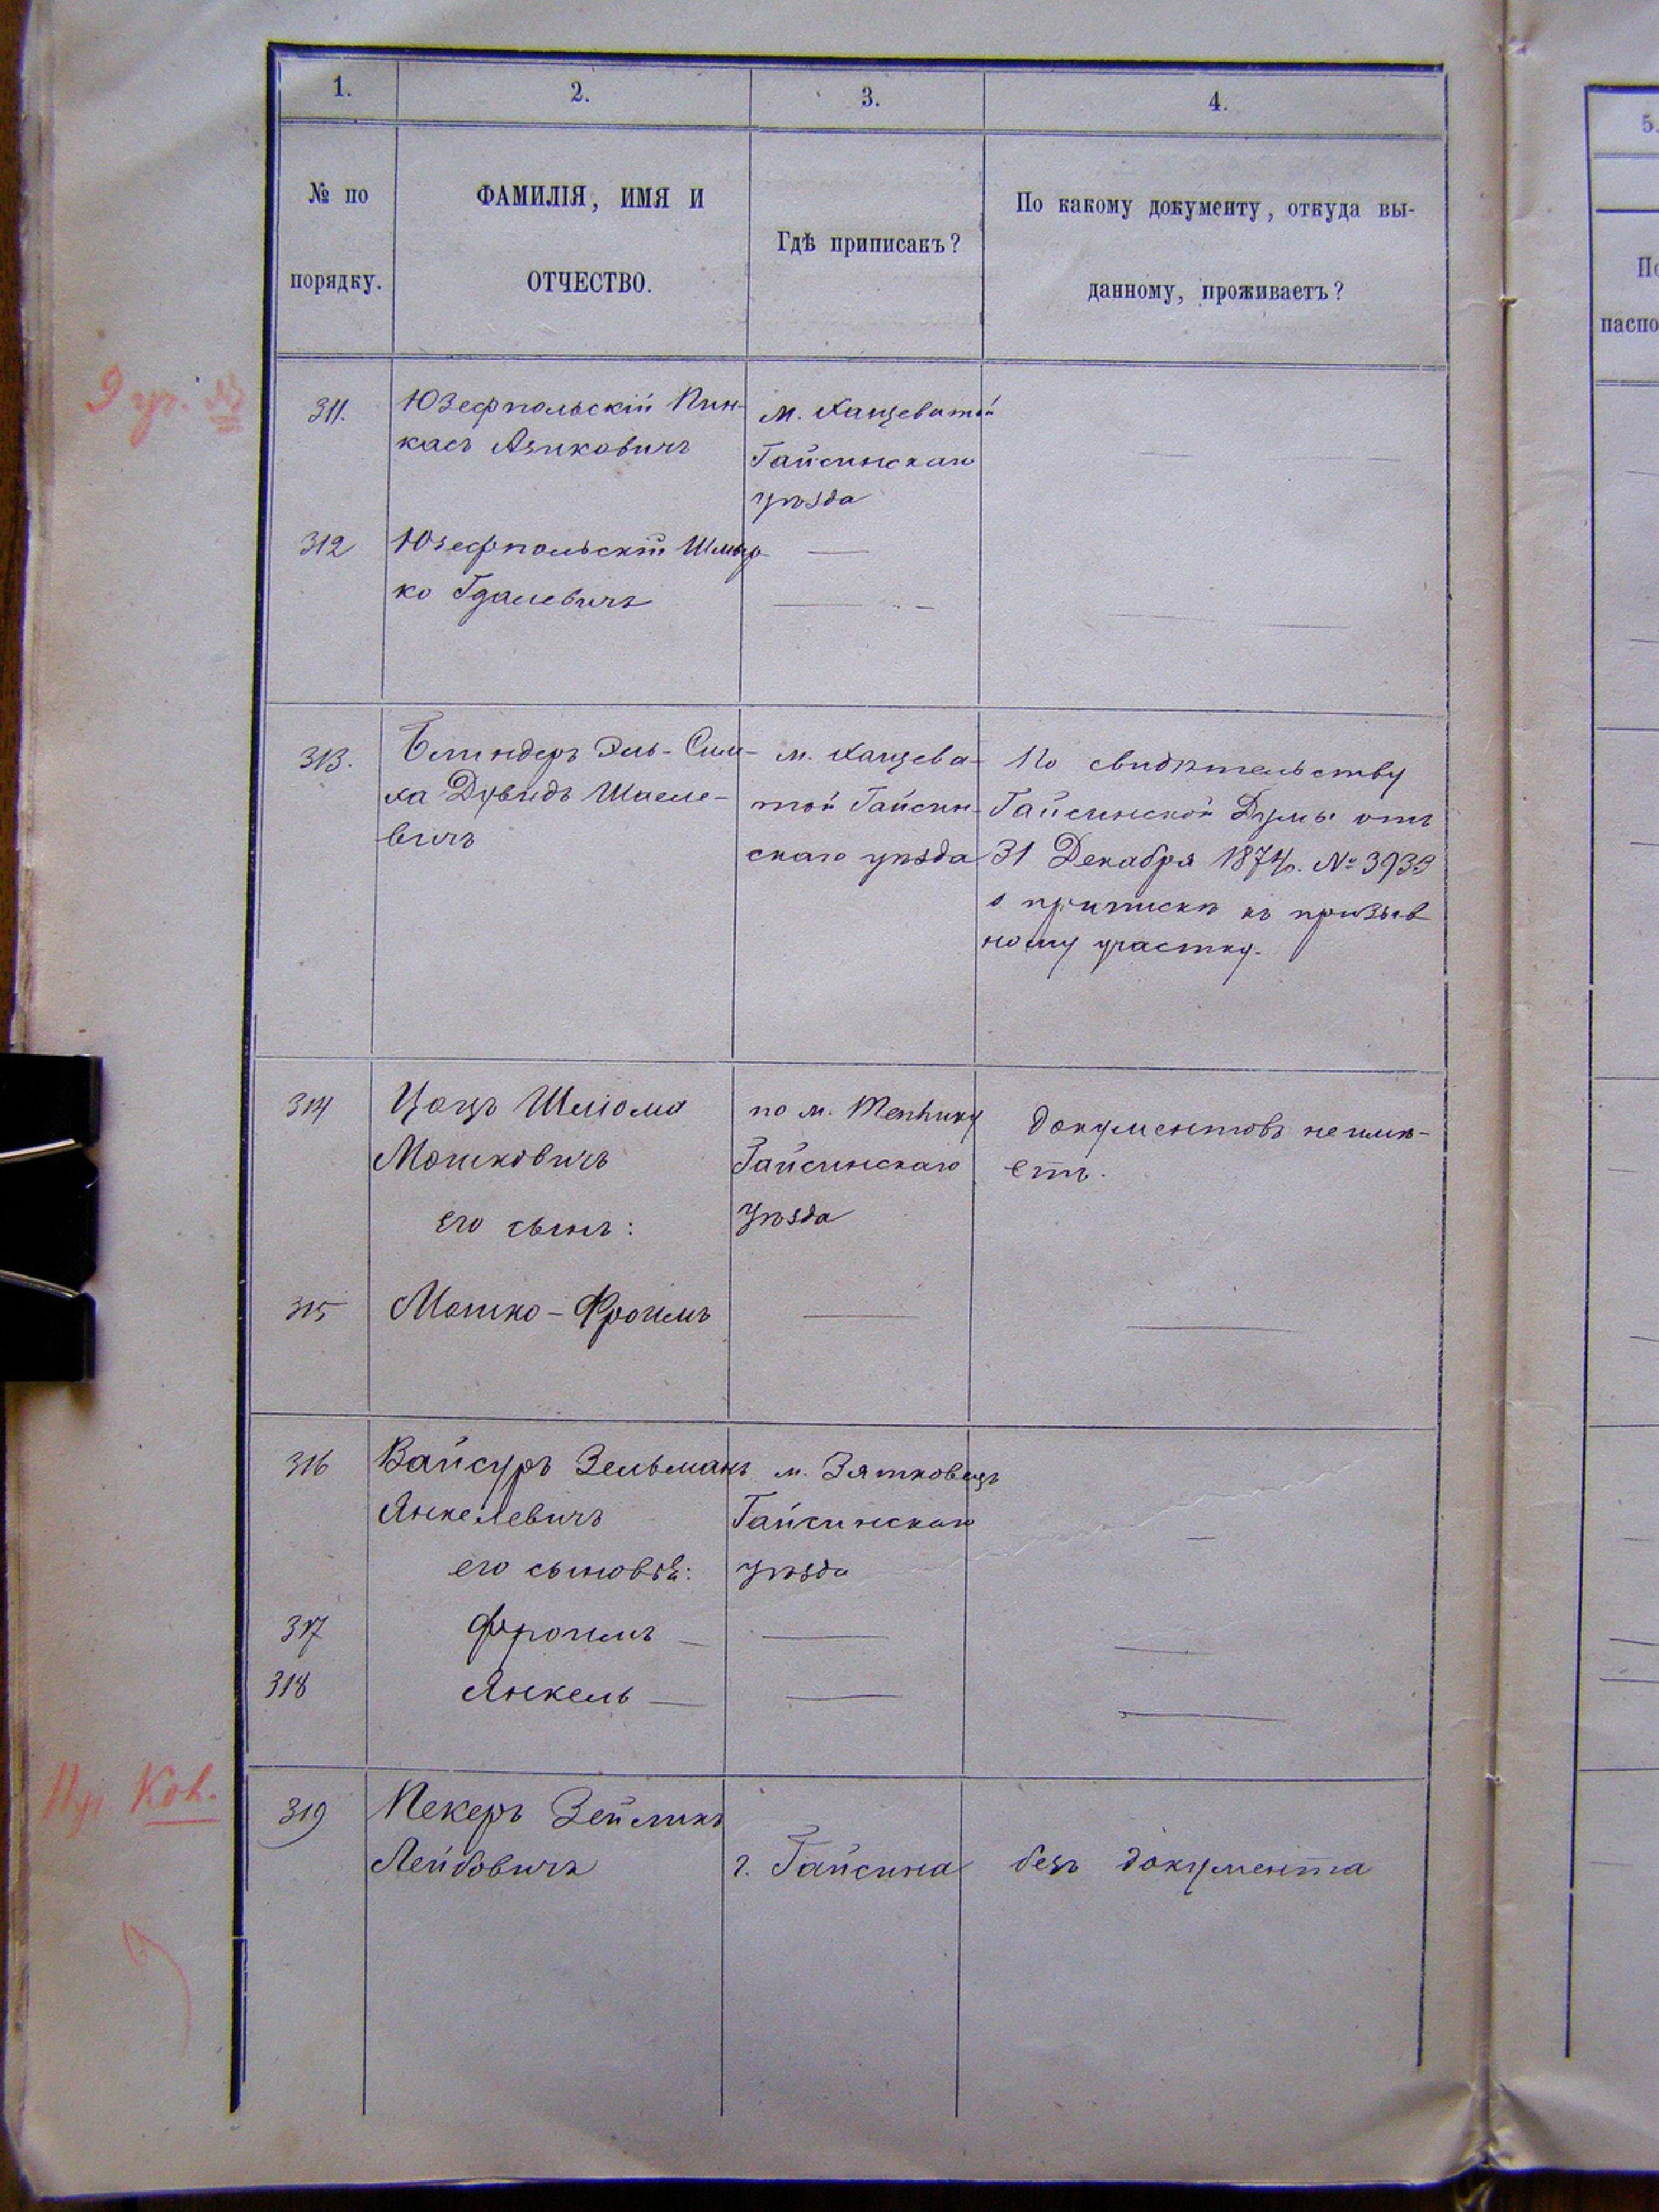 1.
2.
3.
4.
5.
№ по
порядку.
ФАМИЛІЯ, ИМЯ И
ОТЧЕСТВО.
Гдѣ приписанъ?
По какому документу, откуда вы-
данному, проживаетъ?
паспо
311.
Юзефпольскій Пин-
касъ Азиковичъ
м. Хащеватой
Гайсинскаго
уѣзда
312
Юзефпольскій
ко Гдалевичъ
313.
Блиндеръ Эль- Сим-
ха Дувидъ Шаеле-
вичъ
м. Хащева-
той Гайсин-
скаго уѣзда
По свидѣтельству
Гайсинской Думы отъ
31 Декабря 1874г. № 3939
о припискѣ къ призыв
ному участку.
314
Цацъ Шліома
Мошковичъ
его сынъ:
по м. Теплику
Гайсинскаго
Уѣзда
документовъ неимѣ-
етъ.
315
Мошко-Фроимъ
316
Вайсуръ Зельманъ
Янкелевичъ
его сыновья:
м. Зятковецъ
Гайсинскаго
уѣзда
317
Фроимъ
318
Янкель
319
Пекеръ Зейликъ
Лейбовичъ
г. Гайсина
безъ документа
9 уч.
Ков.